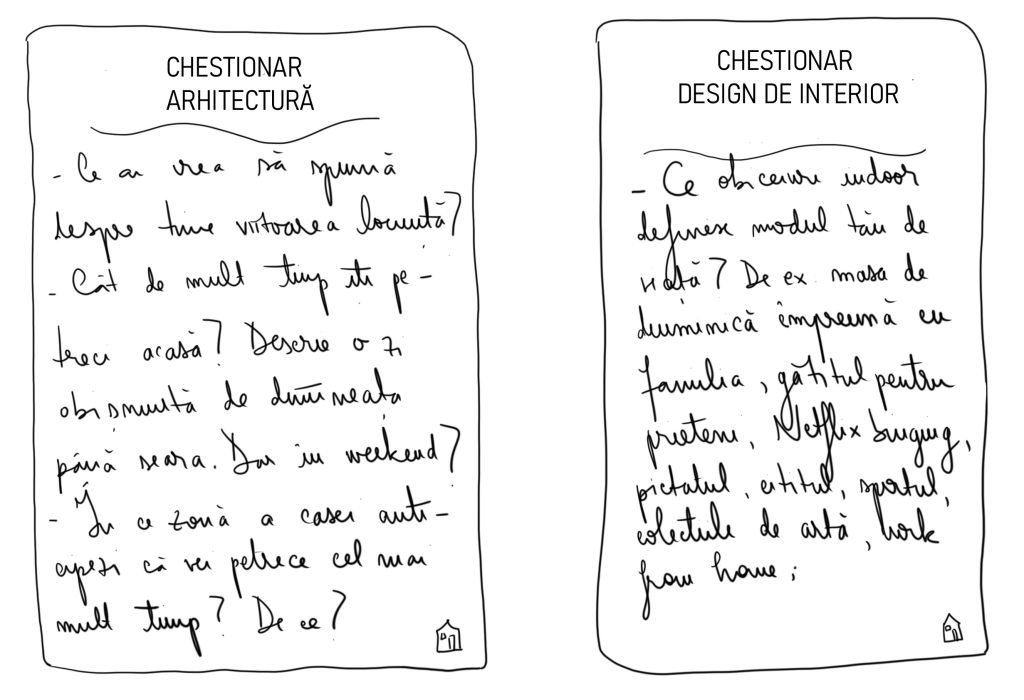 CHESTIONAR
ARHITECTURĂ
- Ce ar vrea să spună
despre tine viitoarea locuință?
- Cât de mult timp îți pe-
treci acasă? Descrie o zi
obișnuită de dimineața
până seara. Dar în weekend?
- În ce zonă a casei anti-
cipezi că vei petrece cel mai
mult timp? De ce?
CHESTIONAR
DESIGN DE INTERIOR
- Ce obiceiuri indoor
definesc modul tău de
viață? De ex masa de
duminică împreună cu
familia, gătitul pentru
prieteni, Netflix binging,
pictatul, cititul, sportul,
colecțiile de artă, work
from home;